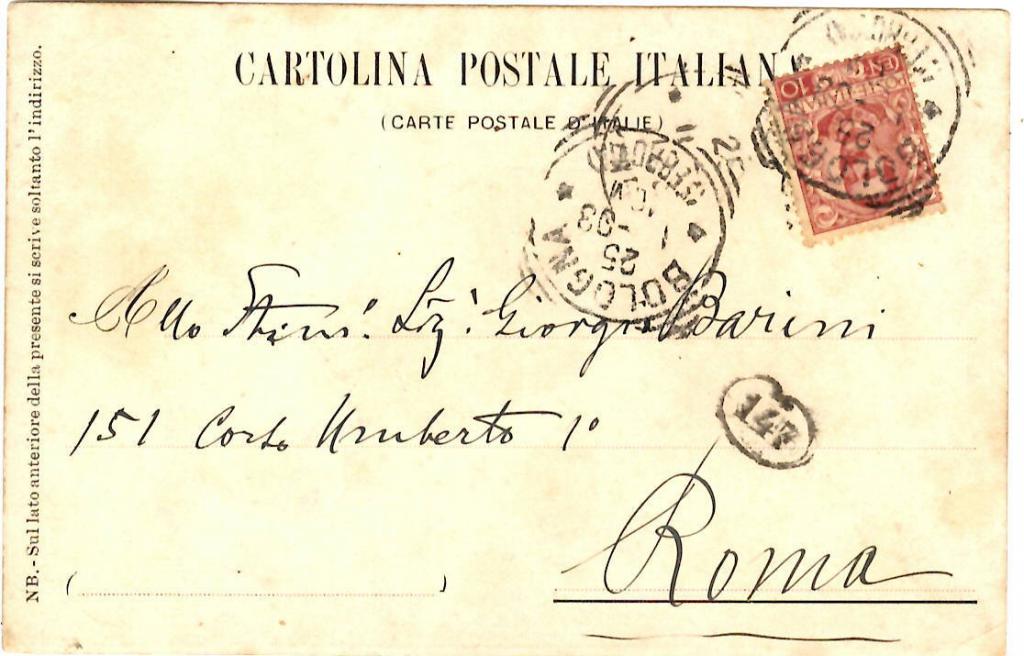 CARTOLINA POSTALE ITALIANA
(CARTE POSTALE D'ITALIE)
NB. - Sul lato anteriore della presente si scrive soltanto l'indirizzo.
BOLOGNA
(FERROVIA)
25
1
-03
POSTE ITALIANE
CENT. 10
Allo Stimo. Sig. Giorgio Barini
151 Corso Umberto 1º
147
Roma